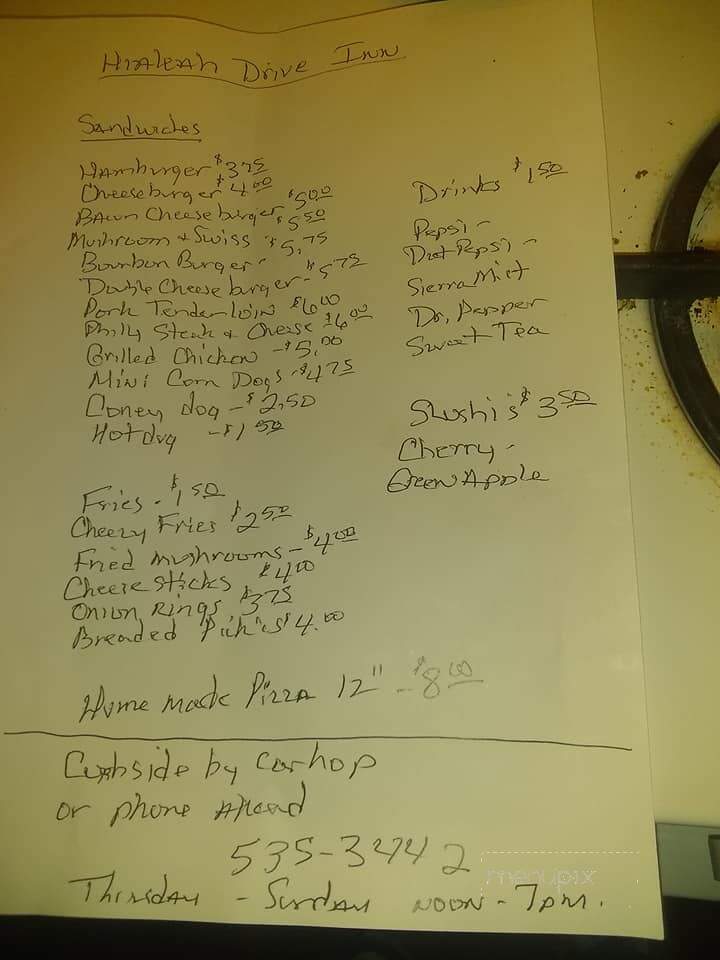 Hialeah Drive Inn
Sandwiches
Hamburger $3.75
Cheeseburger $4.00
Bacon Cheeseburger $5.00
Mushroom & Swiss $5.50
Bourbon Burger - $5.75
Double Cheeseburger - $5.75
Pork Tenderloin $6.00
Philly Steak & Cheese - $6.00
Grilled Chicken - $5.00
Mini Corn Dogs - $4.75
Coney dog - $2.50
Hotdog - $1.50
Fries - $1.50
Cheezy Fries $2.50
Fried mushrooms - $4.00
Cheese sticks $4.00
Onion Rings $3.75
Breaded Pick'es $4.00
Home made Pizza 12" - $8.00
Drinks $1.50
Pepsi -
Diet Pepsi -
Sierra Mist
Dr. Pepper
Sweet Tea
Slushi's $3.50
Cherry -
Green Apple
Curbside by carhop
or phone Ahead
535-3242
Thursday - Sunday noon - 7pm.
menupix